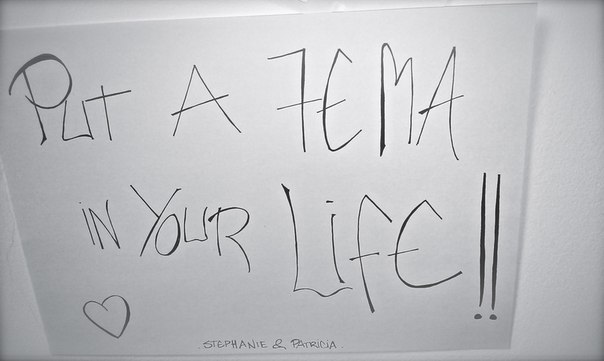 PUT A 7EMA
IN YOUR LiFE!!
STEPHANIE & PATRICIA.